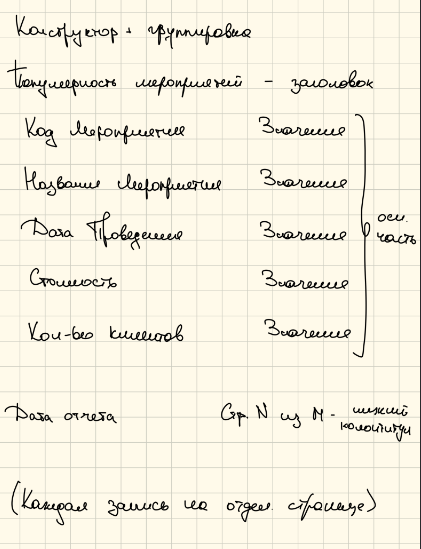 Конструктор + группировка
Популярность мероприятий – заголовок
Код Мероприятия Значение
Название Мероприятия Значение
Дата Проведения Значение осн.
часть
Стоимость Значение
Кол-во клиентов Значение
Дата отчета Стр. N из M - нижний
колонтитул
(Каждая запись на отдел. странице)